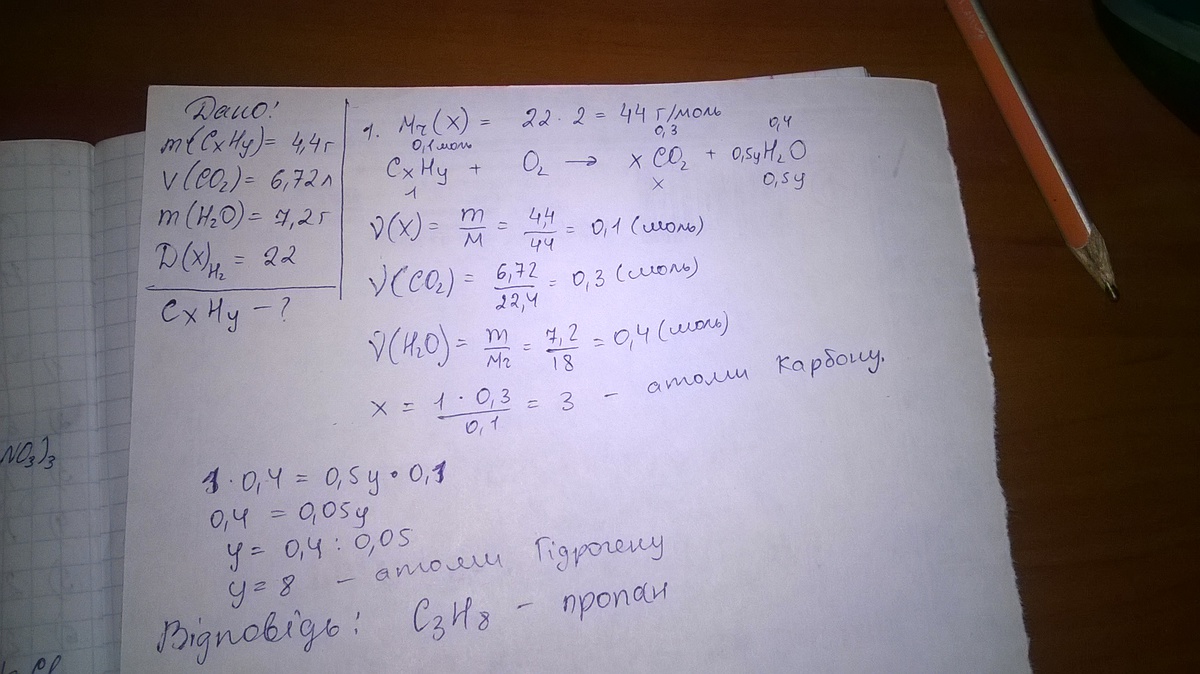 Дано:
m(CxHy) = 4,4г
V(CO2) = 6,72л
m(H2O) = 7,2г
D(X)H2 = 22
CxHy – ?
1. Mr(X) = 22 · 2 = 44 г/моль
0,1 моль 0,3 0,4
CxHy + O2 → x CO2 + 0,5yH2O
1 x 0,5y
ν(X) = m/M = 4,4/44 = 0,1 (моль)
ν(CO2) = 6,72/22,4 = 0,3 (моль)
ν(H2O) = m/Mr = 7,2/18 = 0,4 (моль)
x = 1 · 0,3/0,1 = 3 – атоми Карбону.
1 · 0,4 = 0,5y · 0,1
0,4 = 0,05y
y = 0,4 : 0,05
y = 8 – атоми Гідрогену
Відповідь: C3H8 – пропан
NO3)3